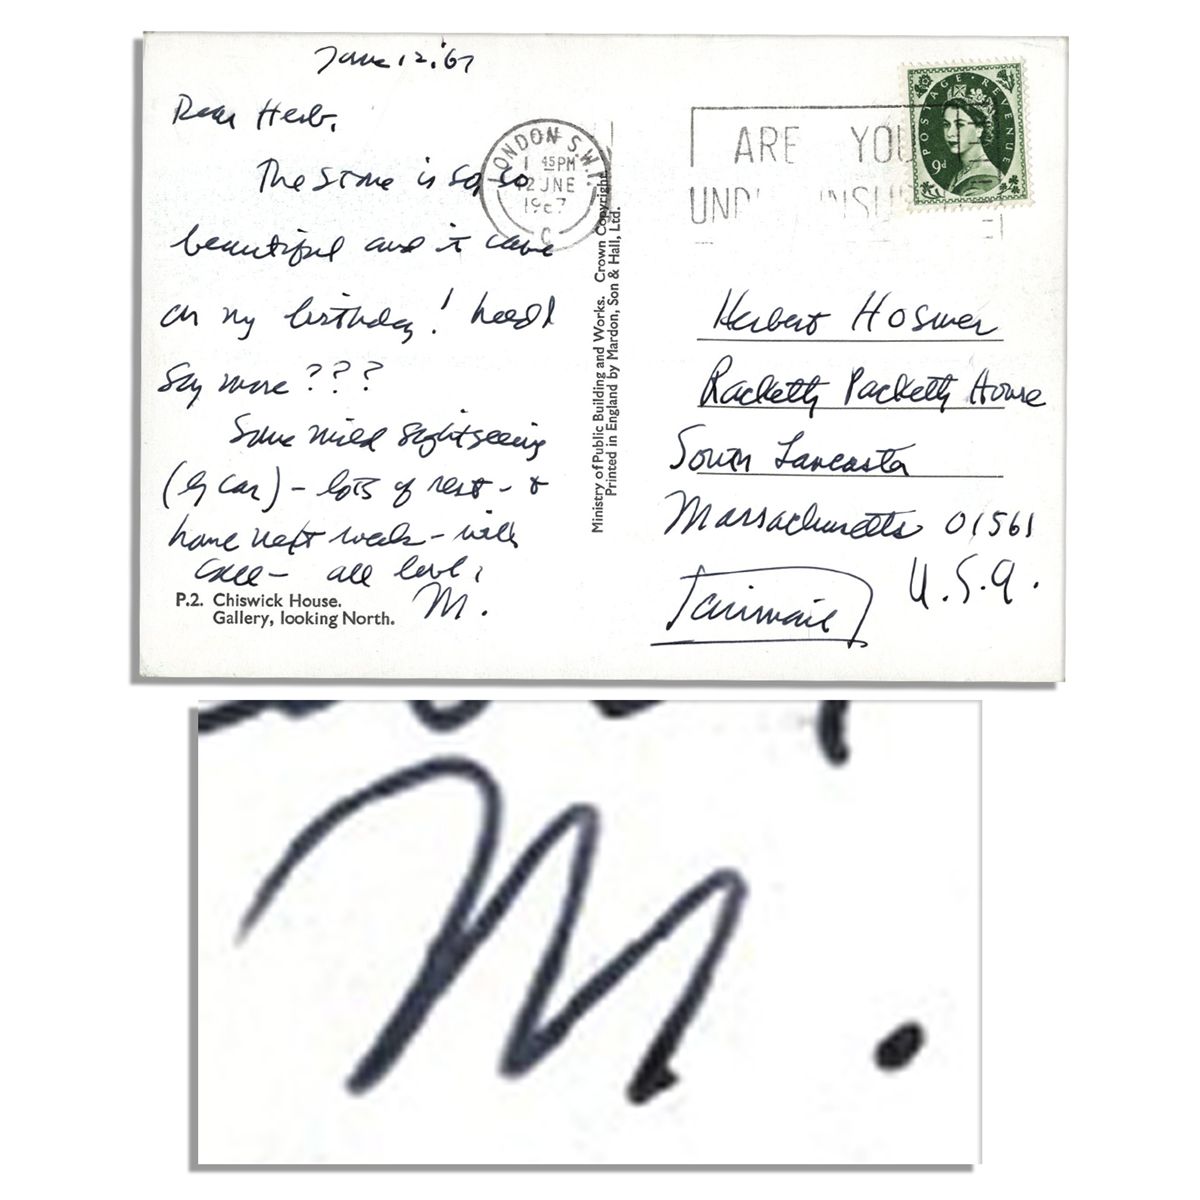 June 12, '67
Dear Herb,
The stone is so, so
beautiful and it came
on my birthday! Need I
say more???
Some mild sightseeing
(by car) - lots of rest - &
home next week - will
call - all love,
M.
P.2. Chiswick House.
Gallery, looking North.
LONDON S.W.1.
1 45PM
12 JUNE
1967
C
Ministry of Public Building and Works. Crown Copyright
Printed in England by Mardon, Son & Hall, Ltd.
ARE YOU
UND INSU
POSTAGE REVENUE
9d
Herbert Hosmer
Racketty Packetty House
South Lancaster
Massachusetts 01561
U.S.A.
airmail
M.